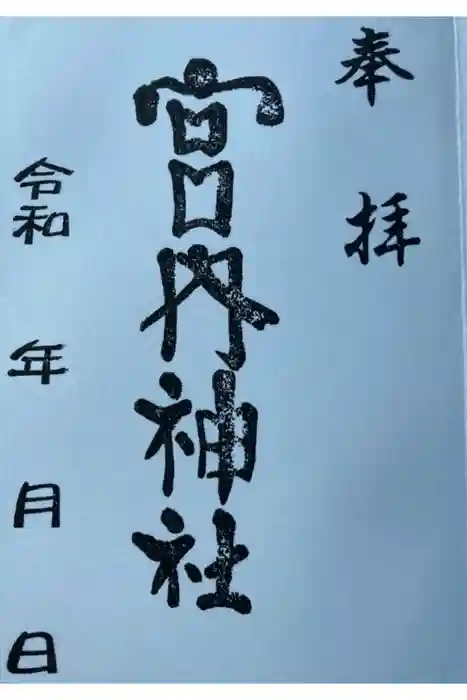 奉拝
宮内神社
令和 年 月 日